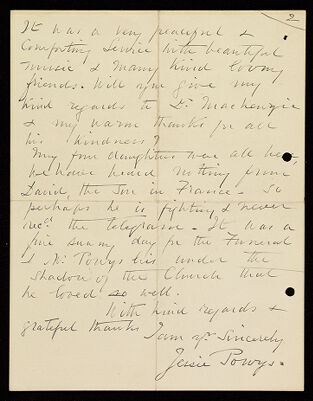 2
It was a very peaceful &
Comforting Service with beautiful
music & many kind loving
friends. Will you give my
kind regards to Dr. Mackenzie
& my warm thanks for all
his kindness?
My four daughters were all here,
we have heard nothing from
David, the Son in France. So
perhaps he is fighting & never
recd. the telegram. It was a
fine sunny day for the Funeral
& Mr. Powys lies under the
Shadow of the Church that
he loved so well.
With kind regards &
grateful thanks
I am yrs. Sincerely
Jessie Powys.